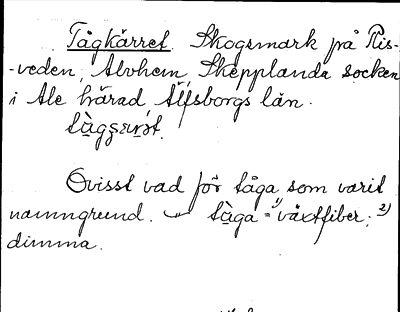 Tågkärret. Skogsmark på Ris-
-veden, Alvhem, Skepplanda socken
i Ale härad Älfsborgs län.

Ovisst vad för tåga som varit
namngrund. tåga = 1) växtfiber; 2)
dimma.